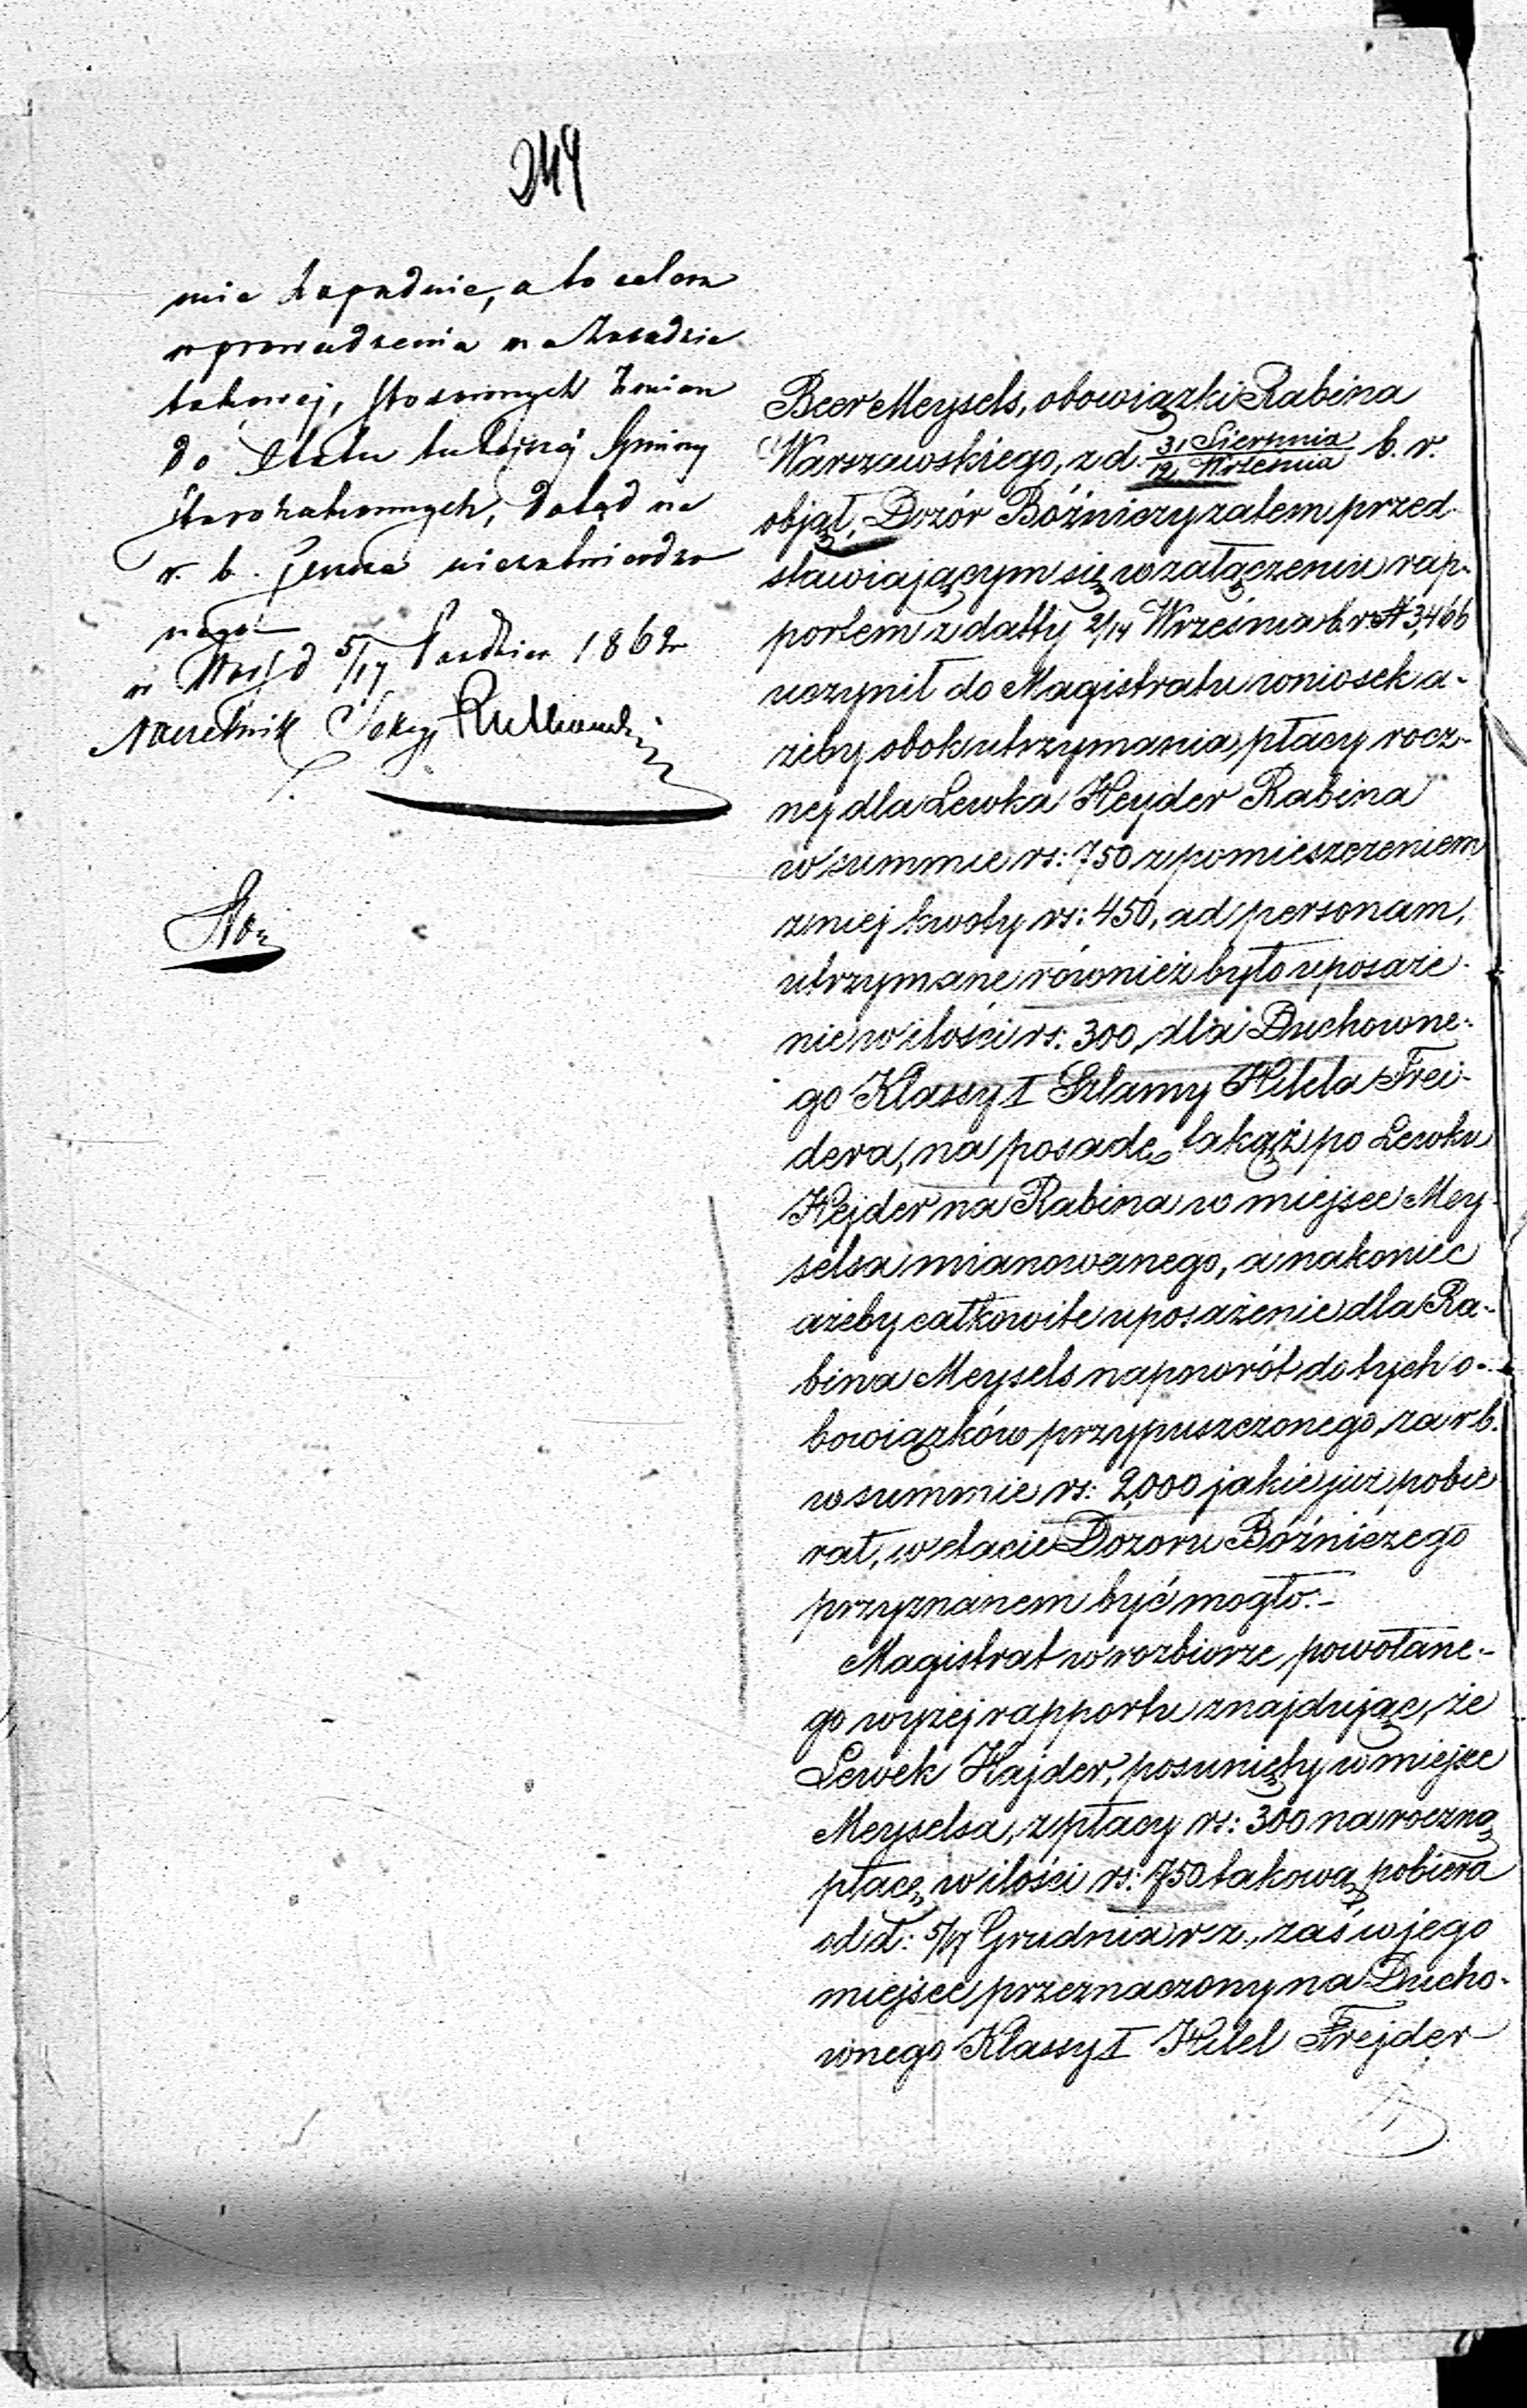 249
mie zapadnie, a to celem
wprowadzenia na zasadzie
takowej, stosownych zmian
do Etatu tutejszej Gminy
Starozakonnych, dotąd na
r. b. jeszcze niezatwierdzo
nego
w Warsz d 5/17 Paździer 1862
Naczelnik Sekcyi
Beer Meysels, obowiązki Rabina
Warszawskiego, z d. 31 Sierpnia / 12 Września b. r.
objął, Dozór Bóźniczy zatem przed
stawiającym się w załączeniu rap-
portem z datty 2/14 Września b. r. № 3,466
uczynił do Magistratu wniosek a-
żeby obok utrzymania płacy rocz-
nej dla Lewka Heyder Rabina
w summie rs: 750 z pomieszczeniem
z niej kwoty rs: 450, ad personam,
utrzymane również było uposaże-
nie w ilości rs: 300, dla Duchowne-
go Klassy I Szlamy Hilela Frei-
dera, na posadę takąż po Lewku
Hejder na Rabina w miejsce Mey-
selsa mianowanego, a nakoniec
ażeby całkowite uposażenie dla Ra-
bina Meysels napowrót do tych o-
bowiązków przypuszczonego, za r b.
w summie rs: 2,000 jakie już pobie
rał, w etacie Dozoru Bóźniczego
przyznanem być mogło.-
Magistrat w rozbiorze powołane-
go wyżej rapportu znajdując, że
Lewek Hajder, posunięty w miejsce
Meyselsa, z płacy rs: 300 na roczną
płacę w ilości rs: 750 takową pobiera
od d: 5/17 Grudnia r z., zaś w jego
miejsce przeznaczony na Ducho-
wnego Klassy I Hilel Frejder